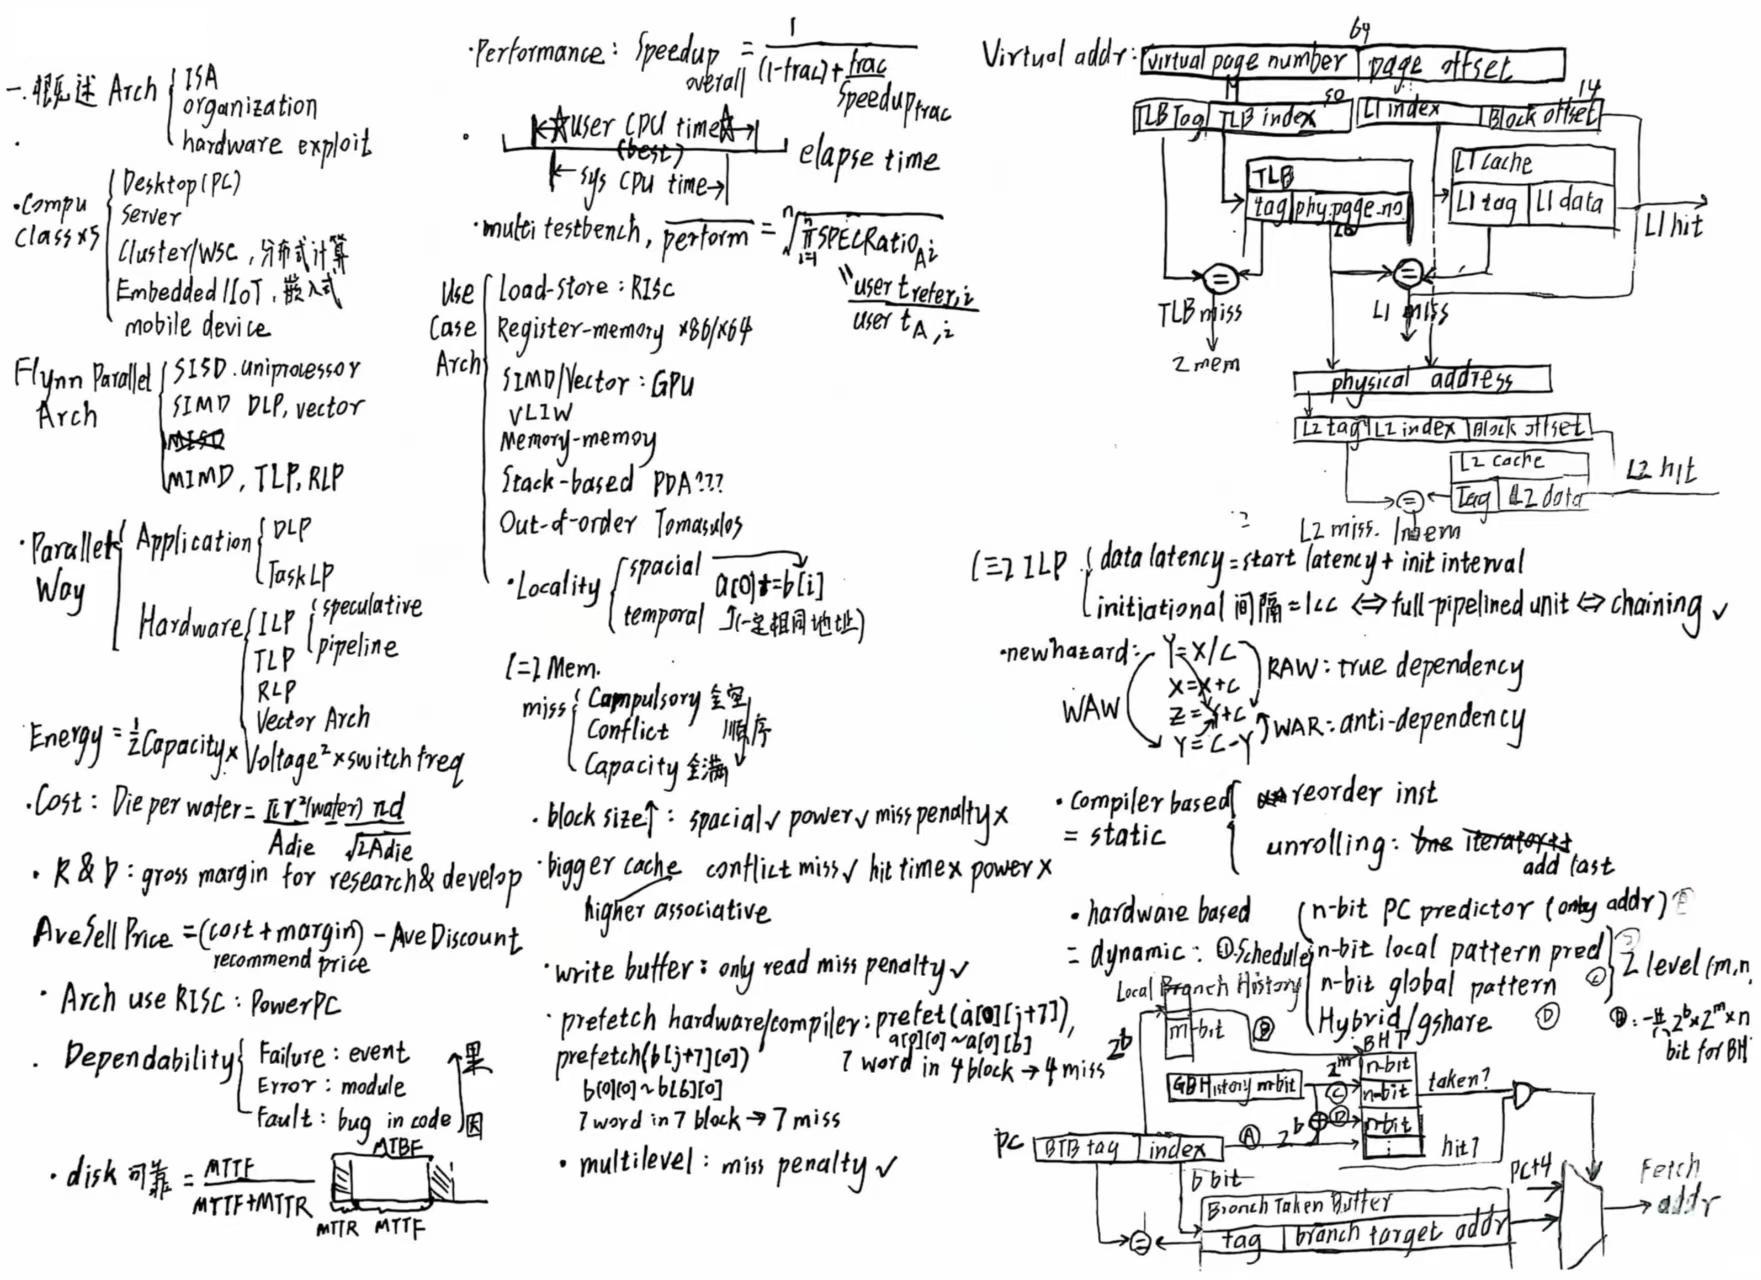 一.概述 Arch
ISA
organization
hardware exploit
·Compu
Class×5
Desktop(PC)
Server
Cluster/WSC, 分布式计算
Embedded/IoT, 嵌入式
mobile device
Flynn Parallel
Arch
SISD. uniprocessor
SIMD DLP, vector
MISD
MIMD, TLP, RLP
·Parallel
Way
Application
DLP
TaskLP
Hardware
ILP
speculative
pipeline
TLP
RLP
Vector Arch
·Energy = ½ Capacity × Voltage² × switch freq
·Cost: Die per water = πr²(water) πd
Adie √2Adie
· R & D: gross margin for research & develop
Ave Sell Price = (cost + margin) - Ave Discount
recommend price
· Arch use RISC: PowerPC
· Dependability
Failure: event
Error: module
Fault: bug in code
果
因
· disk 可靠 = MTTF
MTTF+MTTR
MTBF
MTTR MTTF
·Performance: Speedup overall = 1
(1-frac)+ frac
Speedup frac
user CPU time
(best)
sys CPU time
elapse time
·multi testbench, perform = ⁿ√ⁿπᵢ₌₁ SPECRatio A i
user t refer, i
user t A, i
Use
Case
Arch
Load-store: RISC
Register-memory ×86/×64
SIMD/Vector: GPU
VLIW
Memory-memoy
Stack-based PDA???
Out-of-order Tomasulos
·Locality
spacial
a[0]+=b[i]
temporal (一定相同地址)
(二) Mem.
miss
Compulsory 全空
Conflict 顺序
Capacity 全满
· block size↑: spacial✓ power✓ miss penalty×
· bigger cache conflict miss✓ hit time× power×
higher associative
· write buffer: only read miss penalty✓
· prefetch hardware/compiler: prefet(a[0][j+7]),
a[0][0]~a[0][6]
7 word in 4 block → 4 miss
prefetch(b[j+7][0])
b[0][0]~b[6][0]
7 word in 7 block → 7 miss
· multilevel: miss penalty✓
Virtual addr:
64
virtual page number
page offset
50
14
TLB Tag
TLB index
L1 index
Block offset
TLB
tag
phy.page.no.
L1 cache
L1 tag
L1 data
L1 hit
=
=
TLB miss
2 mem
L1 miss
physical address
L2 tag
L2 index
Block offset
L2 cache
Tag
L2 data
L2 hit
=
L2 miss. 1 mem
(三) ILP
data latency = start latency + init interval
initiational 间隔 = 1cc ⇔ full-pipelined unit ⇔ chaining ✓
·new hazard:
Y=X/C
X=X+C
Z=Y+C
Y=C-Y
WAW
RAW: true dependency
WAR: anti-dependency
· Compiler based
= static
reorder inst
unrolling:
add last
· hardware based
= dynamic: ①Schedule
n-bit PC predictor (only addr)
n-bit local pattern pred
n-bit global pattern Ⓒ
Hybrid/gshare Ⓓ
2 level (m,n
2ᵇ×2ᵐ×n
bit for BH
Local Branch History
2ᵇ
m-bit
Ⓑ
GB History m-bit
2ᵐ
BHT
n-bit
n-bit
n-bit
Ⓒ
Ⓓ
taken?
hit?
PC
BTB tag
index
Ⓐ
2ᵇ
b bit
Branch Taken Buffer
tag
branch target addr
=
PC+4
Fetch
addr